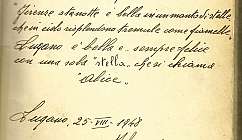 Firenze stanotte è bella in un manto di stelle,
che in cielo risplendono tremule come fiammelle.
Lugano è bella e sempre felice
con una sola "stella" che si chiama
"Alice".
Lugano, 25-VIII-1948